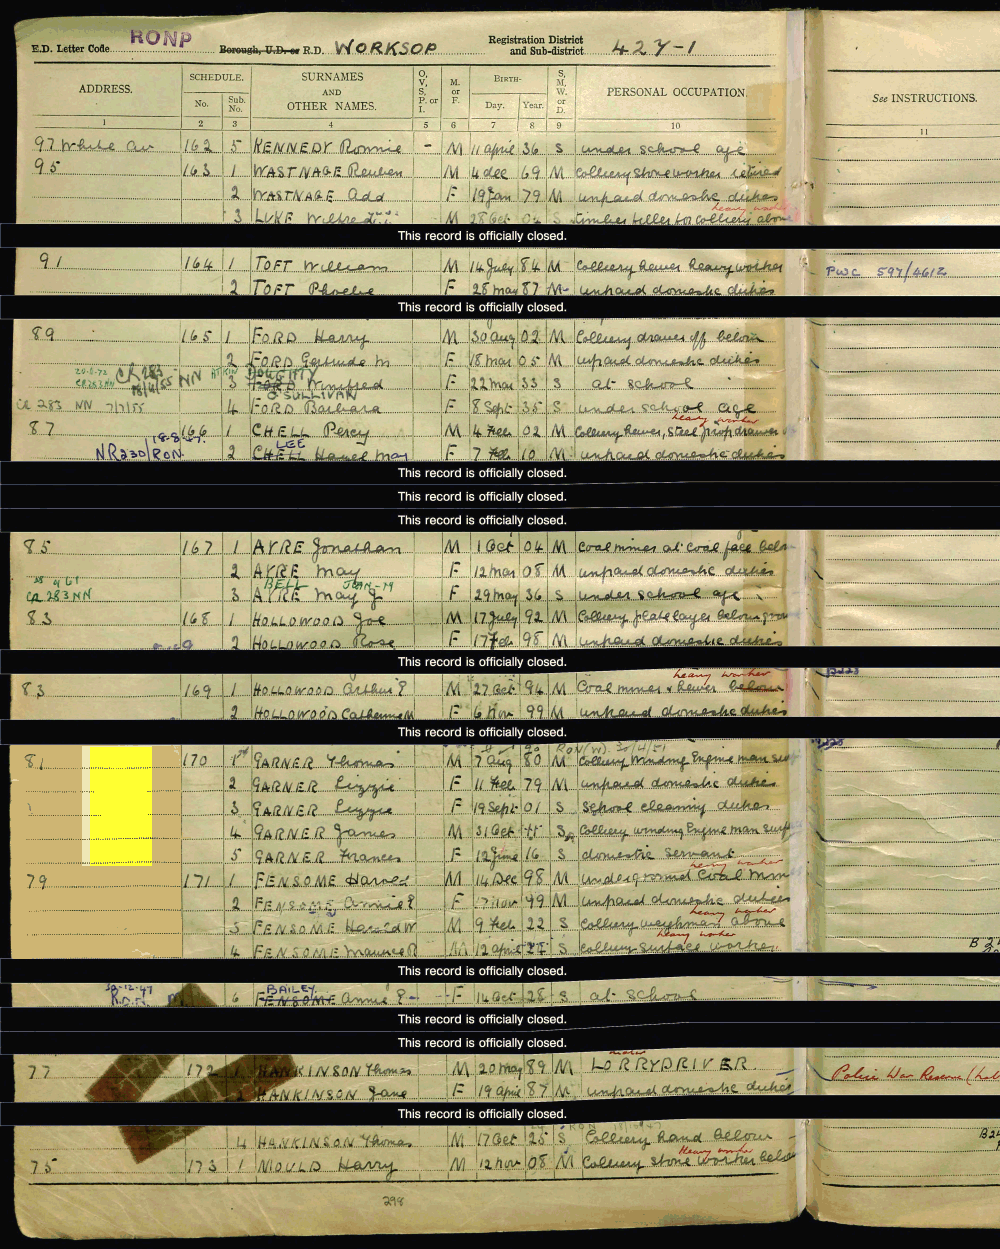 RONP
E.D. Letter Code Borough, U.D. or R.D. WORKSOP Registration District and Sub-district 427-1
ADDRESS. SCHEDULE. No. Sub. No. SURNAMES AND OTHER NAMES. O, V, S, P. or I. M. or F. BIRTH- Day. Year. S, M, W, or D. PERSONAL OCCUPATION. See INSTRUCTIONS.
1 2 3 4 5 6 7 8 9 10 11
97 White Av 162 5 KENNEDY Ronnie - M 11 april 36 S under school age
95 163 1 WASTNAGE Reuben M 4 dec 69 M Colliery stone worker retired
2 WASTNAGE Ada F 19 Jan 79 M unpaid domestic duties
heavy worker
3 LUKE Wilfred M 28 Oct 04 S timber teller for colliery above
This record is officially closed.
91 164 1 TOFT William M 14 July 84 M Colliery hewer heavy worker PWC 597/4612
2 TOFT Phoebe F 28 may 87 M unpaid domestic duties
This record is officially closed.
89 165 1 FORD Harry M 30 aug 02 M Colliery drawer off below
2 FORD Gertrude M F 18 mar 05 M unpaid domestic duties
CR 283 NN
3 FORD Winifred F 22 mar 33 S at school
O'SULLIVAN
CR 283 NN 7/7/55 4 FORD Barbara F 8 Sept 35 S under school age
heavy worker
87 166 1 CHELL Percy M 4 Feb 02 M Colliery hewer, steel prop drawer
18-8-47. LEE
NR230/RON 2 CHELL Hazel may F 7 Feb 10 M unpaid domestic duties
This record is officially closed.
This record is officially closed.
This record is officially closed.
85 167 1 AYRE Jonathan M 1 Oct 04 M Coal miner at coal face below
2 AYRE may F 12 mar 08 M unpaid domestic duties
BELL JEAN-M
CR 283 NN 3 AYRE may J F 29 may 36 S under school age
83 168 1 HOLLOWOOD Joe M 17 July 92 M Colliery platelayer below ground
2 HOLLOWOOD Rose F 17 Feb 98 M unpaid domestic duties
This record is officially closed.
heavy worker
83 169 1 HOLLOWOOD Arthur P M 27 Oct 94 M Coal miner & hewer below
2 HOLLOWOOD Catherine M F 6 Nov 99 M unpaid domestic duties
This record is officially closed.
RON(W) 30/4/51
81 170 1 GARNER Thomas M 7 aug 80 M Colliery Winding Engine man surf
2 GARNER Lizzie F 11 Feb 79 M unpaid domestic duties
3 GARNER Lizzie F 19 Sept 01 S School cleaning duties
4 GARNER James M 31 Oct 11 S Colliery winding Engine man surf
5 GARNER Frances F 12 June 16 S domestic servant
heavy worker
79 171 1 FENSOME Harold M 14 Dec 98 M underground Coal Mm
2 FENSOME Annie P F 17 Nov 99 M unpaid domestic duties
heavy worker
3 FENSOME Harold W M 9 Feb 22 S Colliery weighman above
heavy worker
4 FENSOME Maurice R M 12 april 27 S Colliery surface worker
This record is officially closed.
BAILEY
6 FENSOME Annie P F 14 Oct 28 S at school
This record is officially closed.
This record is officially closed.
77 172 1 HANKINSON Thomas M 20 may 89 M LORRY DRIVER Police War Reserve
2 HANKINSON Jane F 19 april 87 M unpaid domestic duties
This record is officially closed.
4 HANKINSON Thomas M 17 Oct 25 S Colliery hand below
Heavy worker
75 173 1 MOULD Harry M 12 Nov 08 M Colliery stone worker below
298